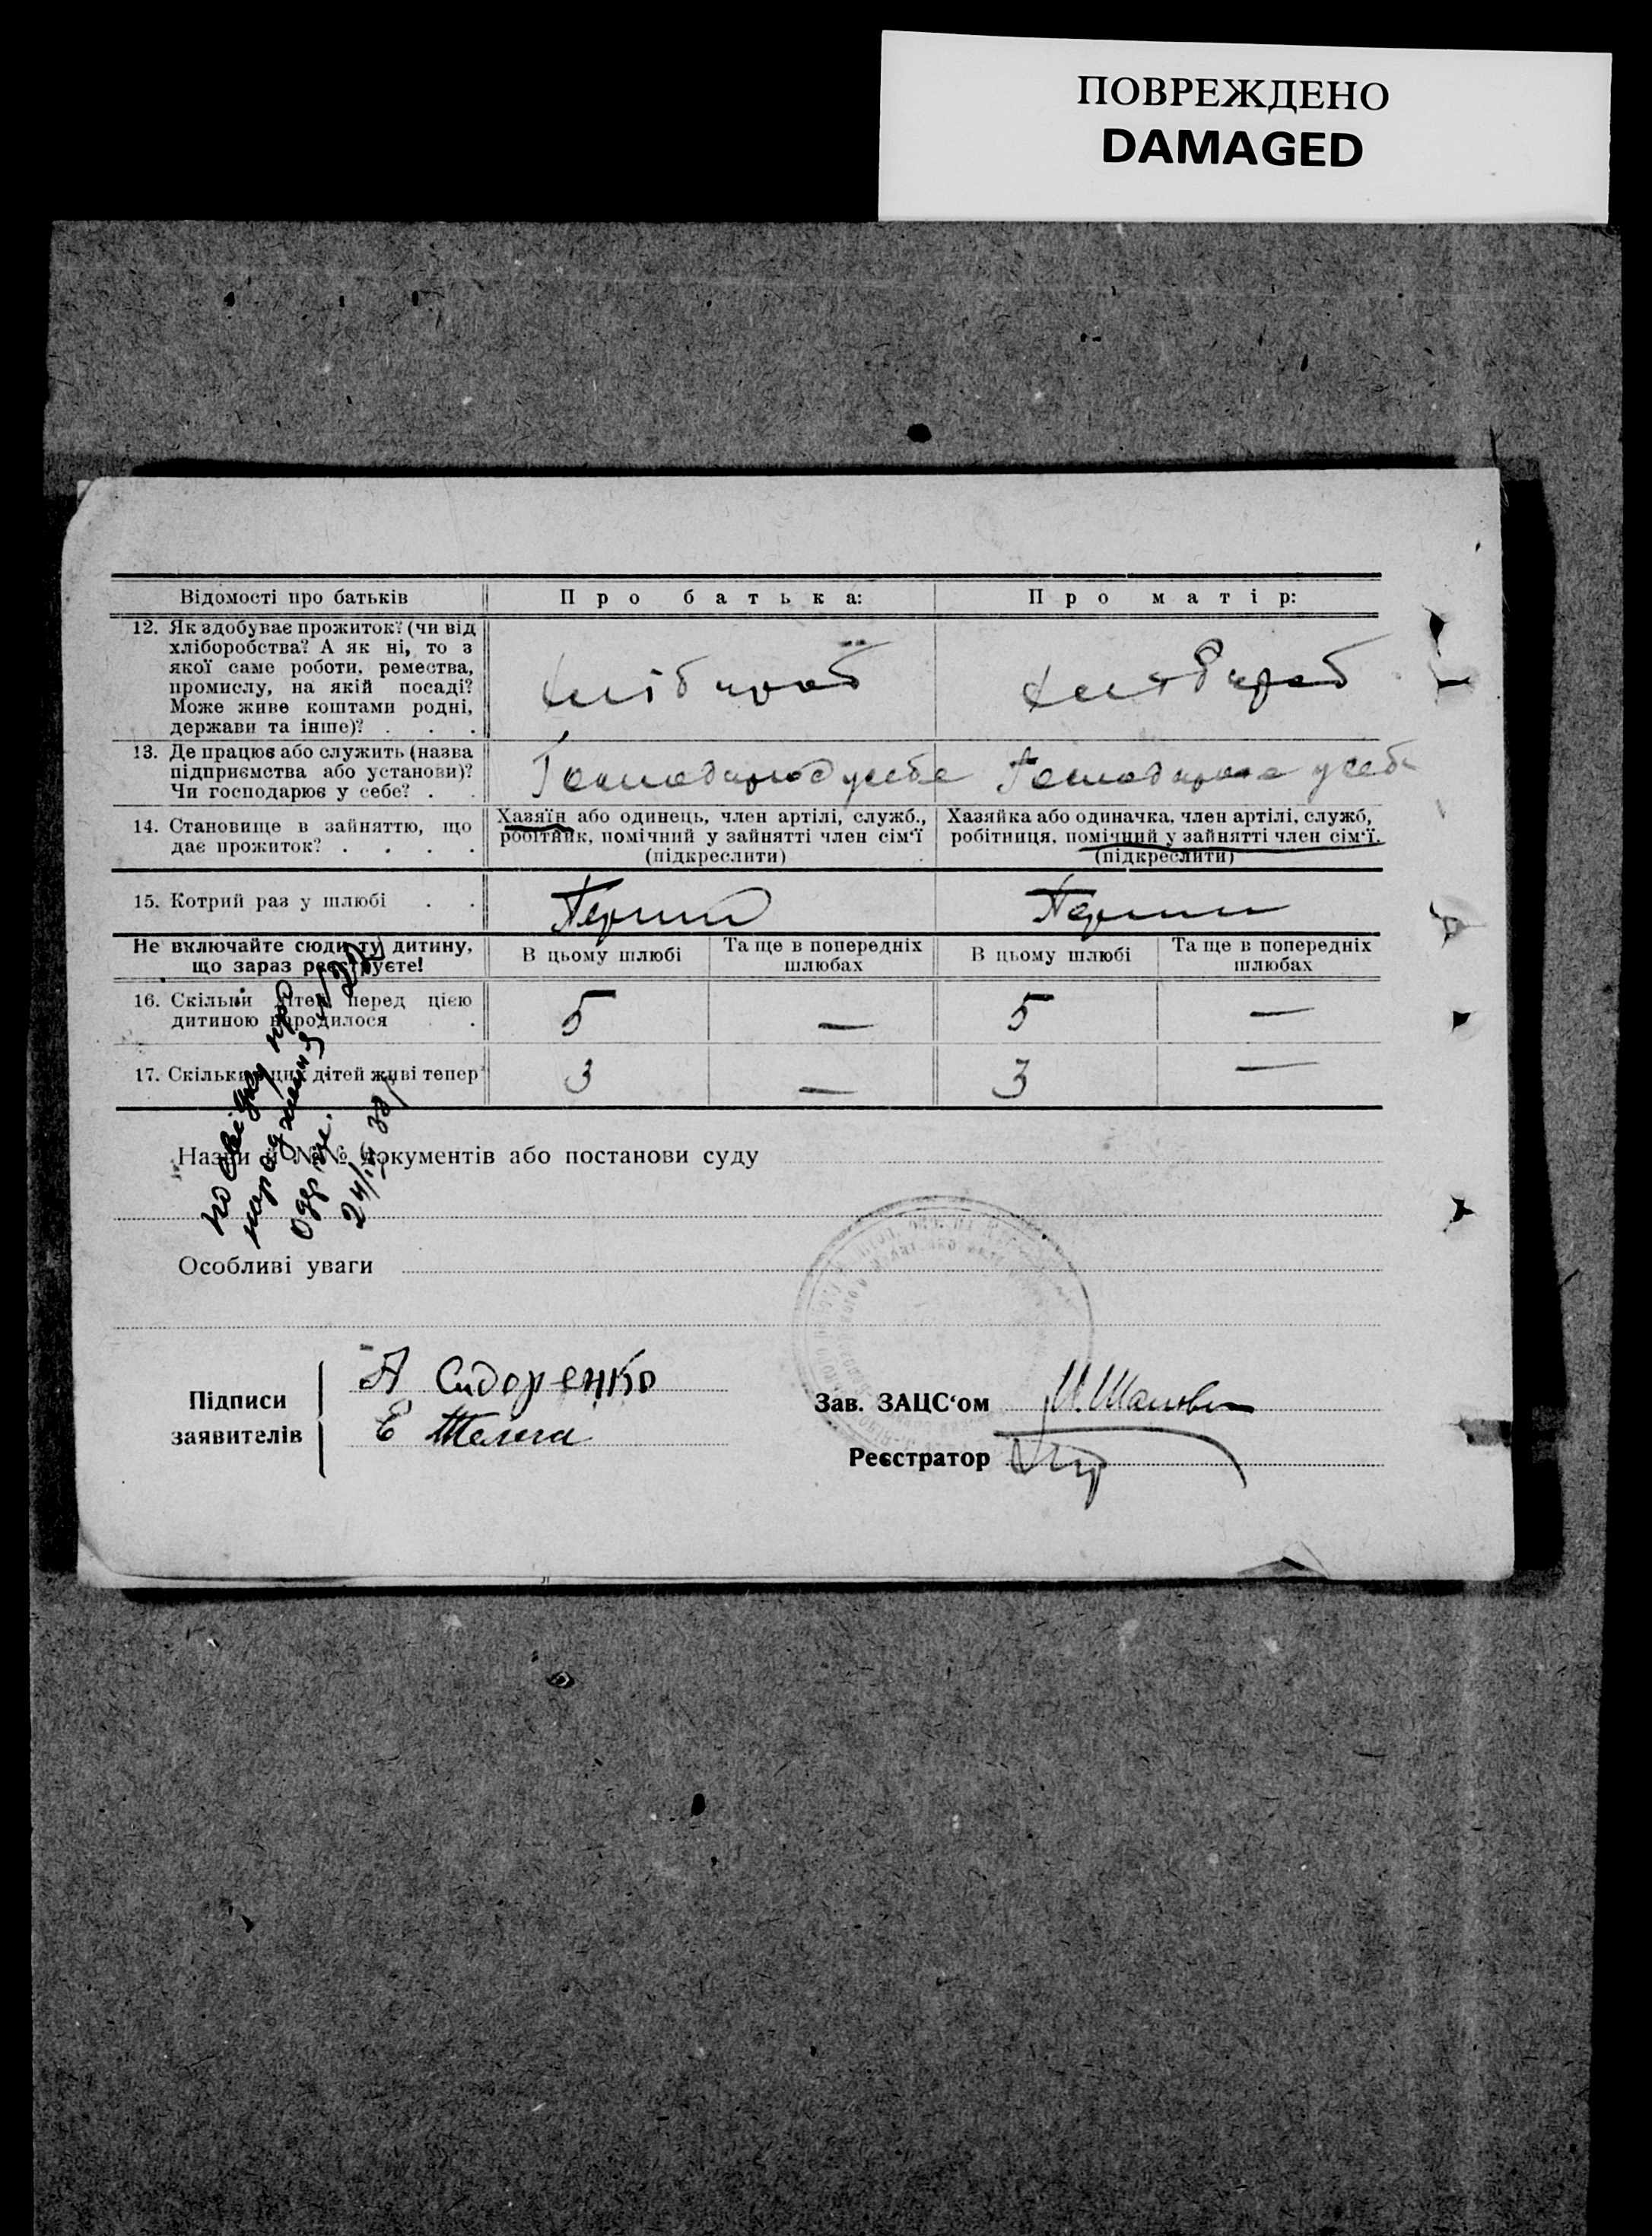 ПОВРЕЖДЕНО
DAMAGED
Відомості про батьків
Про батька:
Про матір:
12. Як здобуває прожиток? (чи від
хліборобства? А як ні, то з
якої саме роботи, ремества,
промислу, на якій посаді?
Може живе коштами родні,
держави та інше)? . . .
хлібороб
хлібороб
13. Де працює або служить (назва
підприємства або установи)?
Чи господарює у себе? . .
Господарює у себе
Господарює у себе
14. Становище в зайняттю, що
дає прожиток? . . . .
Хазяїн або одинець, член артілі, служб.,
робітник, помічний у зайнятті член сім'ї
(підкреслити)
Хазяйка або одиначка, член артілі, служб,
робітниця, помічний у зайнятті член сім'ї.
(підкреслити)
15. Котрий раз у шлюбі . .
Перший
Перший
Не включайте сюди ту дитину,
що зараз реєструєте!
В цьому шлюбі
Та ще в попередніх
шлюбах
В цьому шлюбі
Та ще в попередніх
шлюбах
16. Скільки дітей перед цією
дитиною народилося .
5 — 5 —
17. Скільки з цих дітей живі тепер
3 — 3 —
посвідку про
народження
одержав.
24/IV 33
Назви й №№ документів або постанови суду
Особливі уваги
Підписи
заявителів
А Сидоренко
Е Телега
Зав. ЗАЦС'ом
Реєстратор